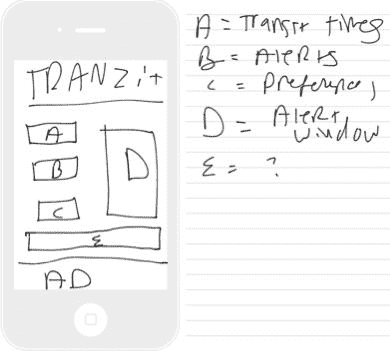 TRANZit
A
B
C
D
E
AD
A = Transit times
B = Alerts
C = Preferences
D = Alert
window
E = ?